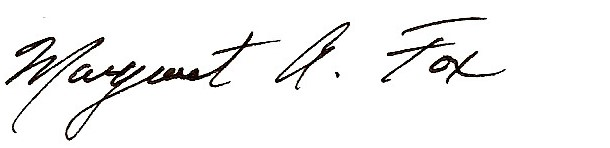 Margaret A. Fox